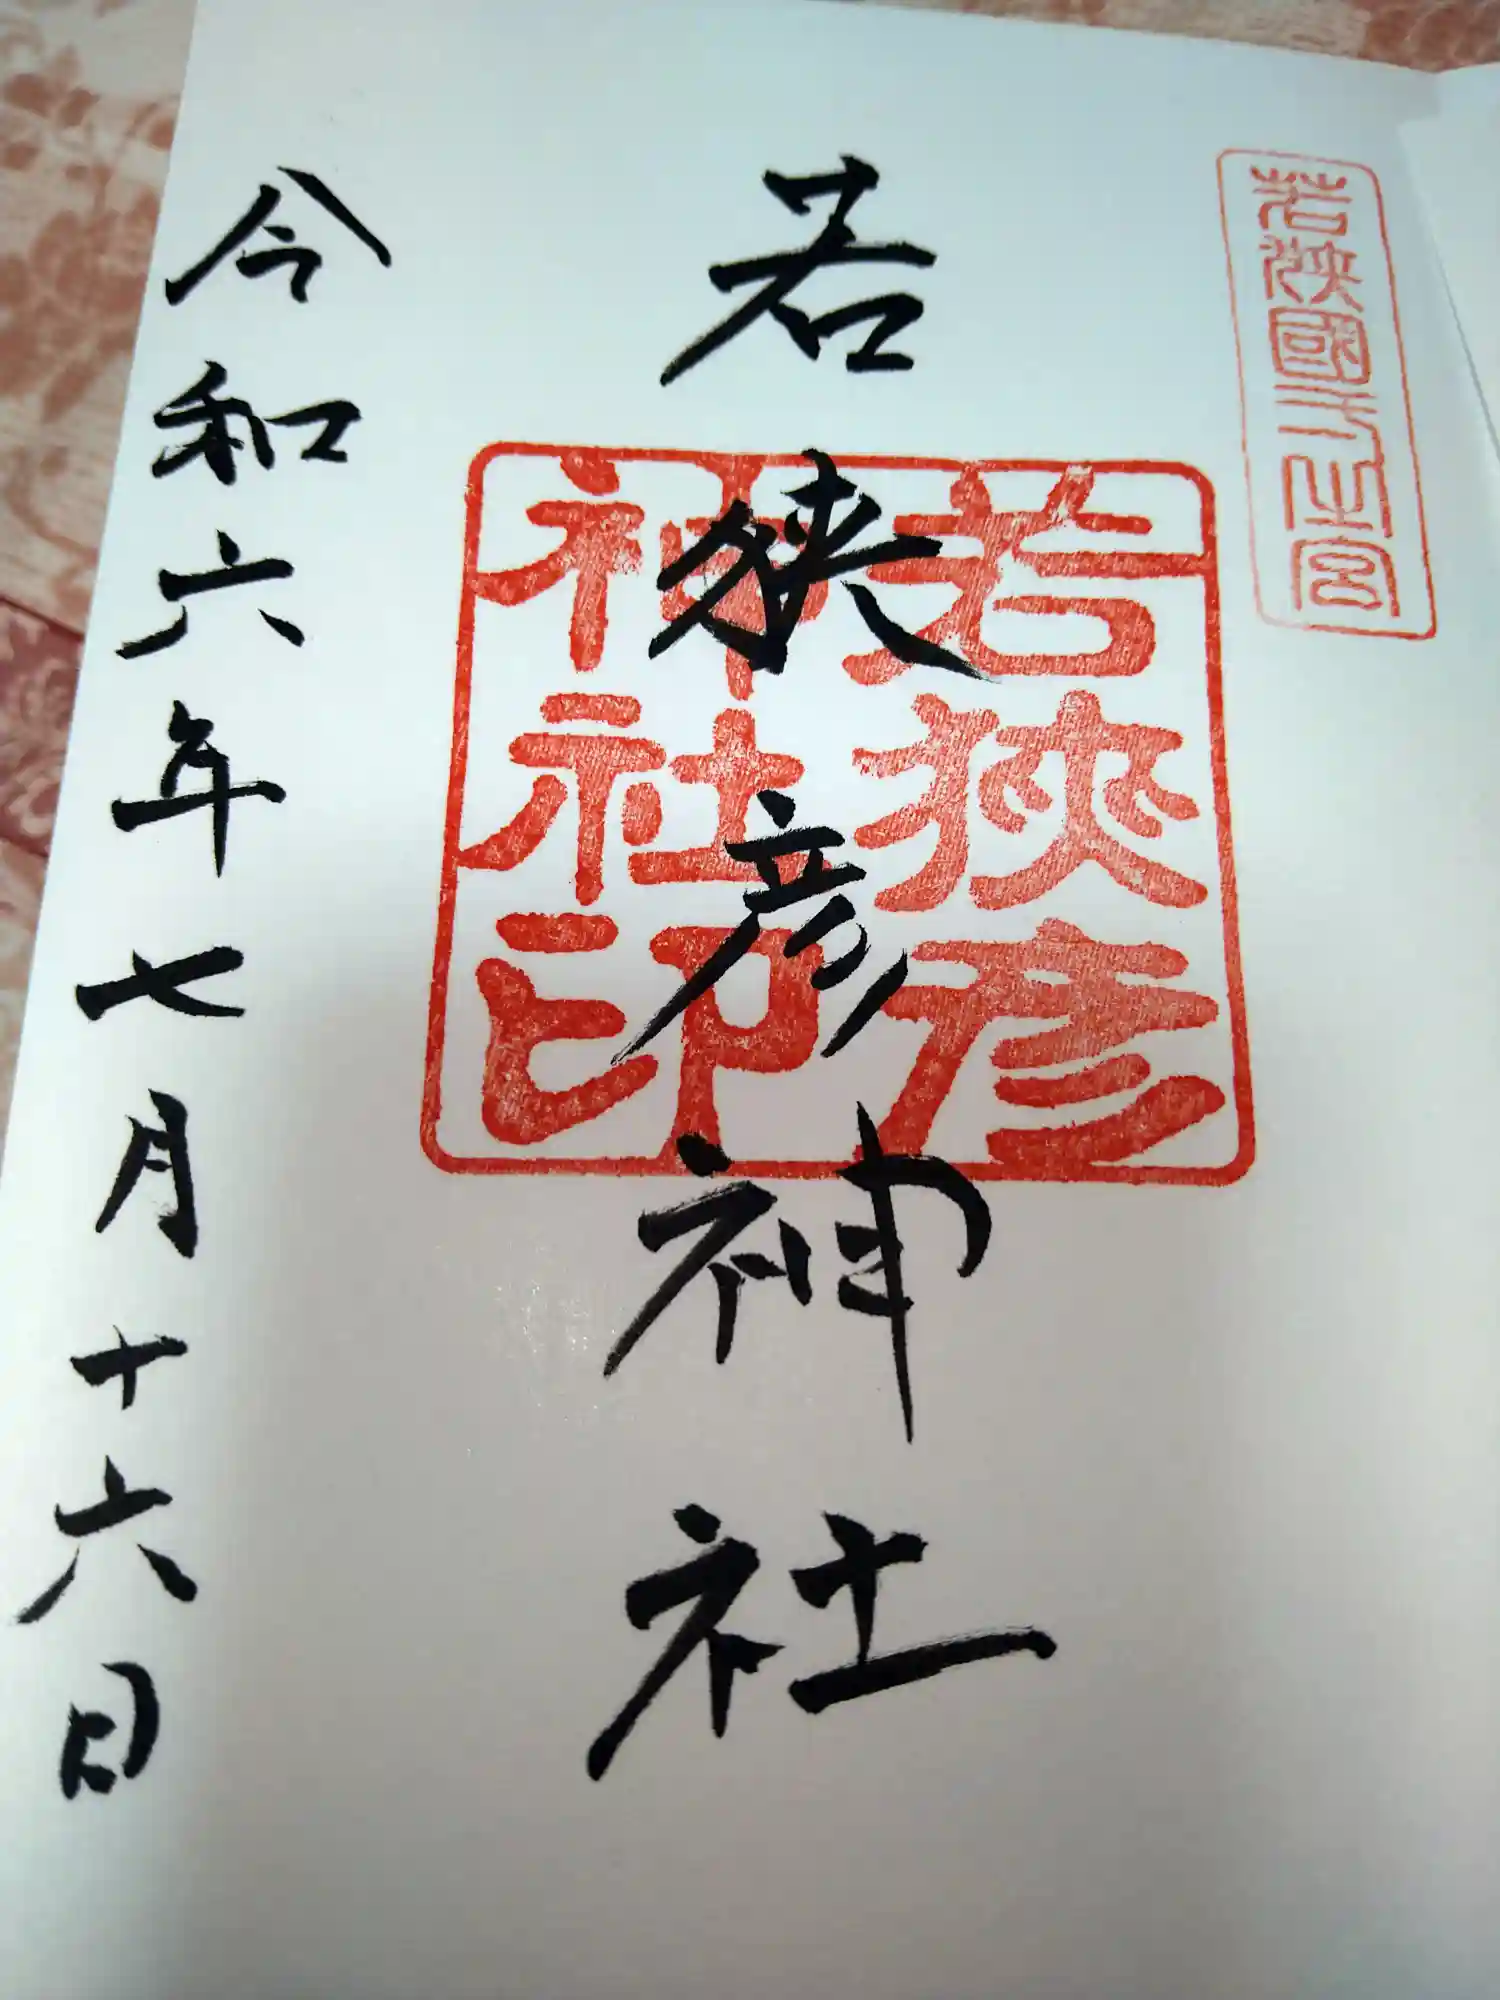 若狹國一之宮
若狹彦
神社印
若狭彦神社
令和六年七月十六日